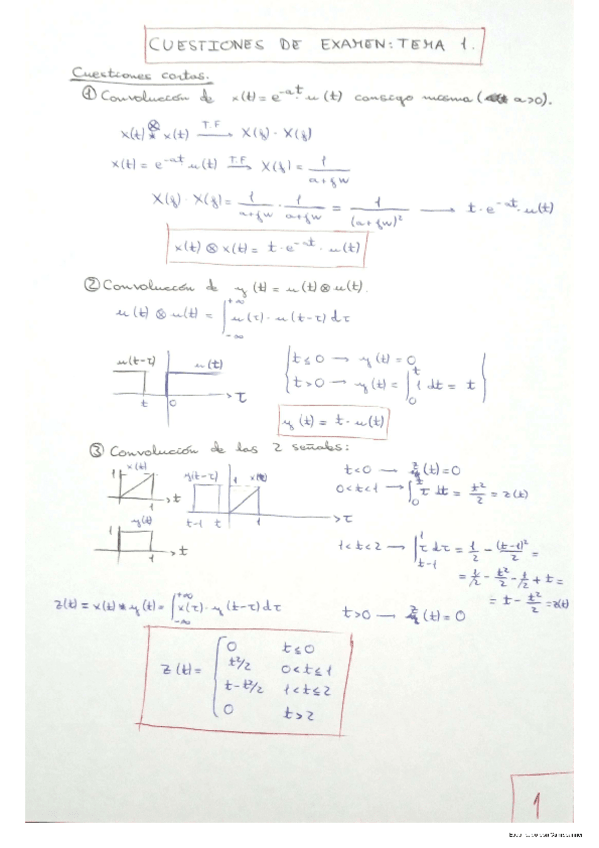 CUESTIONES DE EXAMEN: TEMA 1.
Cuestiones cortas.
① Convolución de x(t) = e^-at · u(t) consigo misma (a>0).
x(t) ⊗ x(t) —T.F→ X(f) · X(f)
x(t) = e^-at · u(t) —T.F→ X(f) = 1/(a+jw)
X(f) · X(f) = 1/(a+jw) · 1/(a+jw) = 1/(a+jw)² → t · e^-at · u(t)
x(t) ⊗ x(t) = t · e^-at · u(t)
② Convolución de y(t) = u(t) ⊗ u(t).
u(t) ⊗ u(t) = ∫_-∞^+∞ u(τ) · u(t-τ) dτ
u(t-τ) u(t)
t 0 τ
t ≤ 0 → y(t) = 0
t > 0 → y(t) = ∫_0^t 1 dt = t
y(t) = t · u(t)
③ Convolución de las 2 señales:
x(t)
1
1 t
y(t)
1
1 t
y(t-τ) 1 x(t)
t-1 t 1 τ
t<0 → z(t) = 0
0<t<1 → ∫_0^t τ dt = t²/2 = z(t)
1<t<2 → ∫_t-1^1 τ dτ = 1/2 - (t-1)²/2 =
= 1/2 - t²/2 - 1/2 + t =
= t - t²/2 = z(t)
z(t) = x(t) * y(t) = ∫_-∞^+∞ x(τ) · y(t-τ) dτ
t>0 → z(t) = 0
z(t) =
0 t ≤ 0
t²/2 0 < t ≤ 1
t - t²/2 1 < t ≤ 2
0 t > 2
1